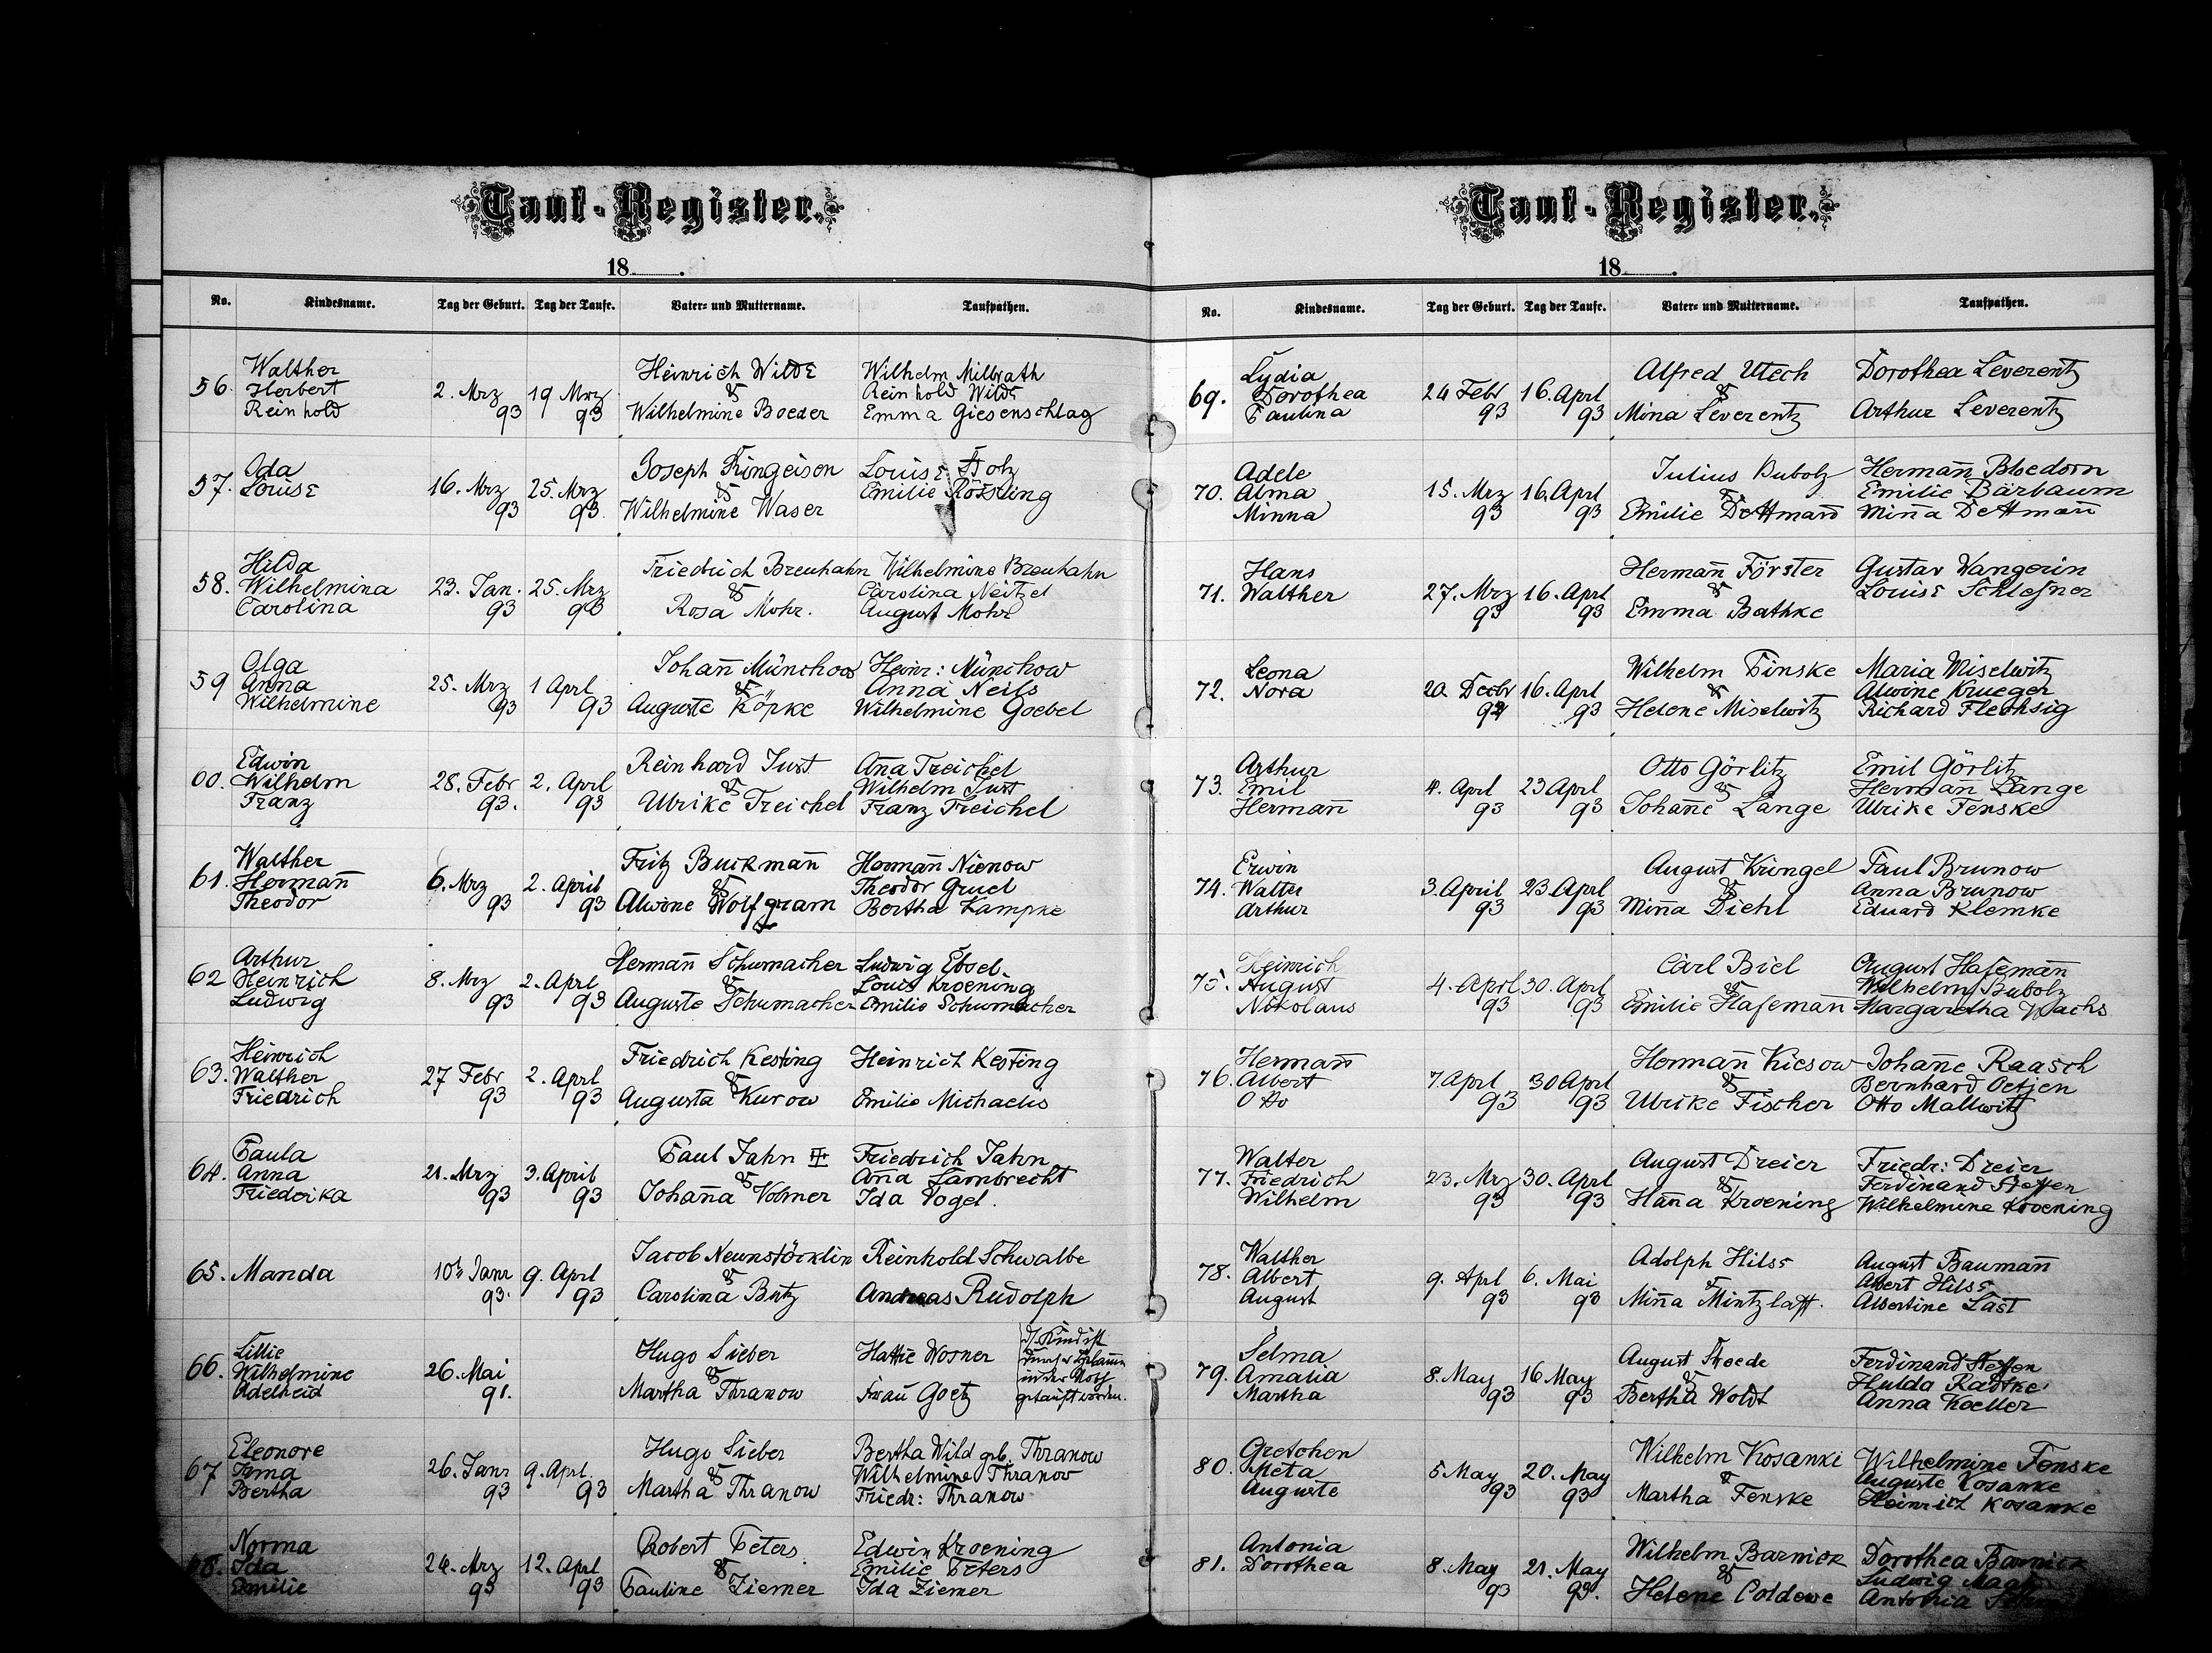 Tauf-Register.
18 .
No. Kindesname. Tag der Geburt. Tag der Taufe. Vater- und Muttername. Taufpathen.
56. Walther Herbert Reinhold 2. Mrz 93 19 Mrz 93 Heinrich Wilde & Wilhelmine Boeder Wilhelm Milbrath Reinhold Wilde Emma Giesenschlag
57. Ida Louise 16. Mrz 93 25. Mrz 93 Joseph Fringeisen & Wilhelmine Waser Louise Stolz Emilie Rössling
58. Hilda Wilhelmina Carolina 23. Jan. 93 25. Mrz 93 Friedrich Breuhahn & Rosa Mohr. Wilhelmine Breuhahn Carolina Neitzel August Mohr
59 Olga Anna Wilhelmine 25. Mrz 93 1 Aprl 93 Johan̄ Münchow & Auguste Köpke Heinr: Münchow Anna Neils Wilhelmine Goebel
60. Edwin Wilhelm Franz 28. Febr 93. 2. Aprl 93 Reinhard Just & Ulrike Treichel An̄a Treichel Wilhelm Just Franz Treichel
61. Walther Herman̄ Theodor 6. Mrz 93 2. April 93 Fritz Buckman̄ & Alwine Wolfgram Herman̄ Nienow Theodor Gruel Bertha Kampke
62 Arthur Heinrich Ludwig 8. Mrz 93 2. Aprl 93 Herman̄ Schumacher & Auguste Schumacher Ludwig Ebsel. Louis Kroening Emilie Schumacher
63. Heinrich Walther Friedrich 27 Febr 93 2. Aprl 93 Friedrich Kesting & Augusta Kurow Heinrich Kesting Emilie Michaelis
64. Paula Anna Friederika 21. Mrz 93 3. April 93 Paul Jahn III & Johan̄a Volmer Friedrich Jahn An̄a Lambrecht Ida Vogel.
65. Manda 10ts Janr 93. 9. Aprl 93 Jacob Neunstöcklin & Carolina Butz Reinhold Schwalbe Andreas Rudolph
66. Lillie Wilhelmine Adelheid 26. Mai 91. Hugo Sieber & Martha Thranow Hattie Wosner Frau Goetz Kind ist in der Noth getauft worden.
67 Eleonore Irma Bertha 26. Janr 93 9. Aprl. 93 Hugo Sieber & Martha Thranow Bertha Wild geb. Thranow Wilhelmine Thranow Friedr: Thranow
68. Norma Ida Emilie 24. Mrz 93 12. Aprl 93 Robert Peters & Pauline Ziemer Edwin Kroening Emilie Peters Ida Ziemer
Tauf-Register.
18 .
No. Kindesname. Tag der Geburt. Tag der Taufe. Vater- und Muttername. Taufpathen.
69. Lydia Dorothea Paulina 24 Febr 93 16. Aprl 93 Alfred Utech & Mina Leverentz Dorothea Leverentz Arthur Leverentz
70. Adele Alma Minna 15. Mrz 93 16. Aprl 93 Julius Bubolz & Emilie Dettmann Herman̄ Bloedorn Emilie Bärbaum Min̄a Dettman̄
71. Hans Walther 27. Mrz 93 16. Aprl 93 Herman̄ Förster & Emma Bathke Gustav Wangerin Louise Schlesner
72. Leona Nora 20 Decbr 92 16. Aprl 93 Wilhelm Finske & Helene Miselwitz Maria Miselwitz Alwine Krueger Richard Flechsig
73. Arthur Emil Herman̄ 4. Aprl 93 23 Aprl 93 Otto Görlitz & Johan̄e Lange Emil Görlitz Herman Lange Ulrike Fenske
74. Erwin Walter Arthur 3. April 93 23. Aprl 93 Krüngel August & Min̄a Diehl Paul Brunow Anna Brunow Eduard Klemke
75. Heinrich August Nikolaus 4. Aprl 93 30. Aprl 93 Carl Biel & Emilie Hafeman̄ August Hafeman̄ Wilhelm Bubolz Margaretha Wachs
76. Hermann Albert Otto 7 Aprl 93 30 Aprl 93 Herman̄ Kiesow & Ulrike Fischer Johan̄e Raasch Bernhard Oetjen Otto Mallwitz
77. Walter Friedrich Wilhelm 23. Mrz 93 30. Aprl 93 August Dreier & Han̄a Kroening Friedr: Dreier Ferdinand Steffen Wilhelmine Kroening
78. Walther Albert August 9. Aprl 93 6. Mai 93 Adolph Hilss & Min̄a Mintzlaff. August Bauman̄ Albert Hilss Albertine Last
79. Selma Amalia Martha 8. May 93 16 May 93 August Stoede & Bertha Woldt Ferdinand Steffen Hulda Radtke Anna Koeller
80. Gretchen Meta Auguste 5. May 93 20. May 93 Wilhelm Kosanke & Martha Fenske Wilhelmine Fenske Auguste Kosanke Heinrich Kosanke
81. Antonia Dorothea 8. May 93 21. May 93. Wilhelm Barnick & Helene Coldewe Dorothea Barnick Ludwig Antonia